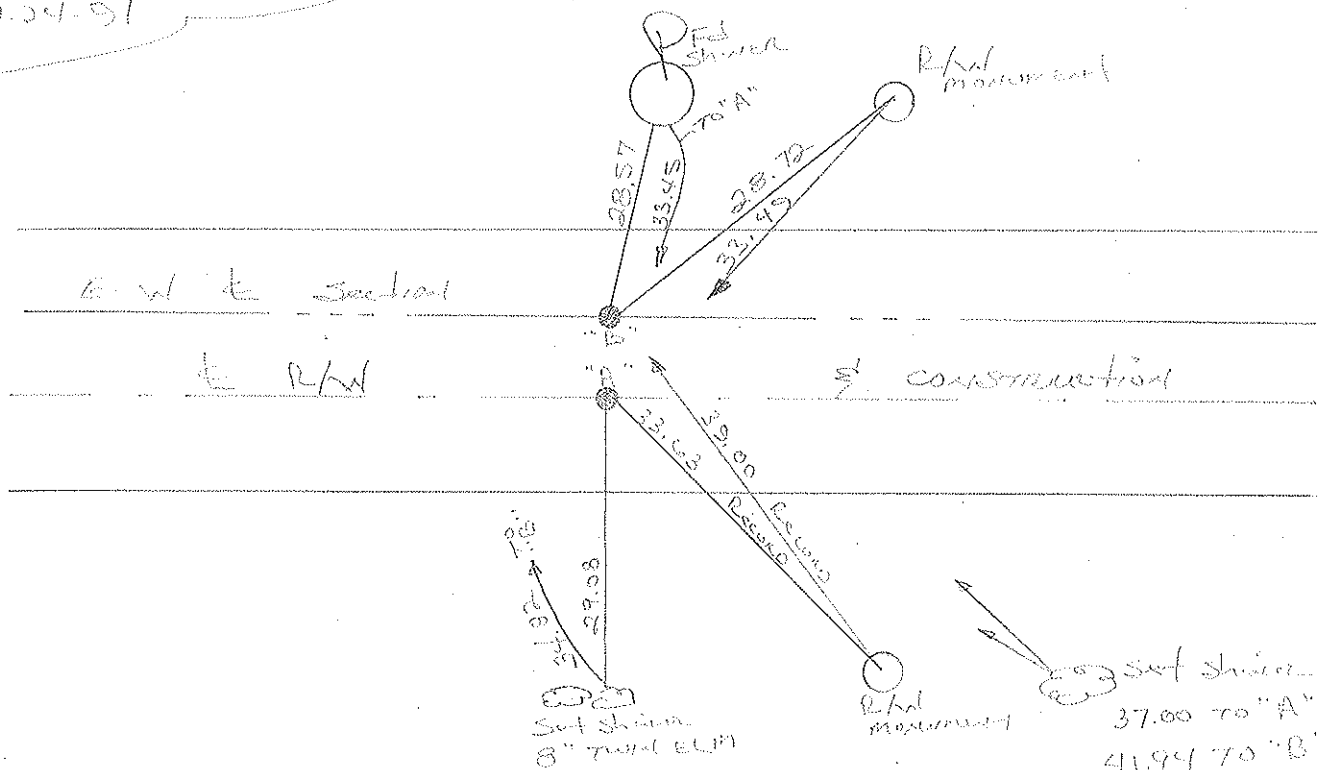 24.91
Fd
Shiner
R/W
MONUMENT
TO "A"
28.57
33.45
28.72
33.49
E-W ℄ Section
"B"
"A"
℄ R/W
& CONSTRUCTION
33.63
RECORD
39.00
RECORD
TO "B"
29.08
Set Shiner
8" TWIN ELM
R/W
MONUMENT
Set Shiner
37.00 TO "A"
41.94 TO "B"